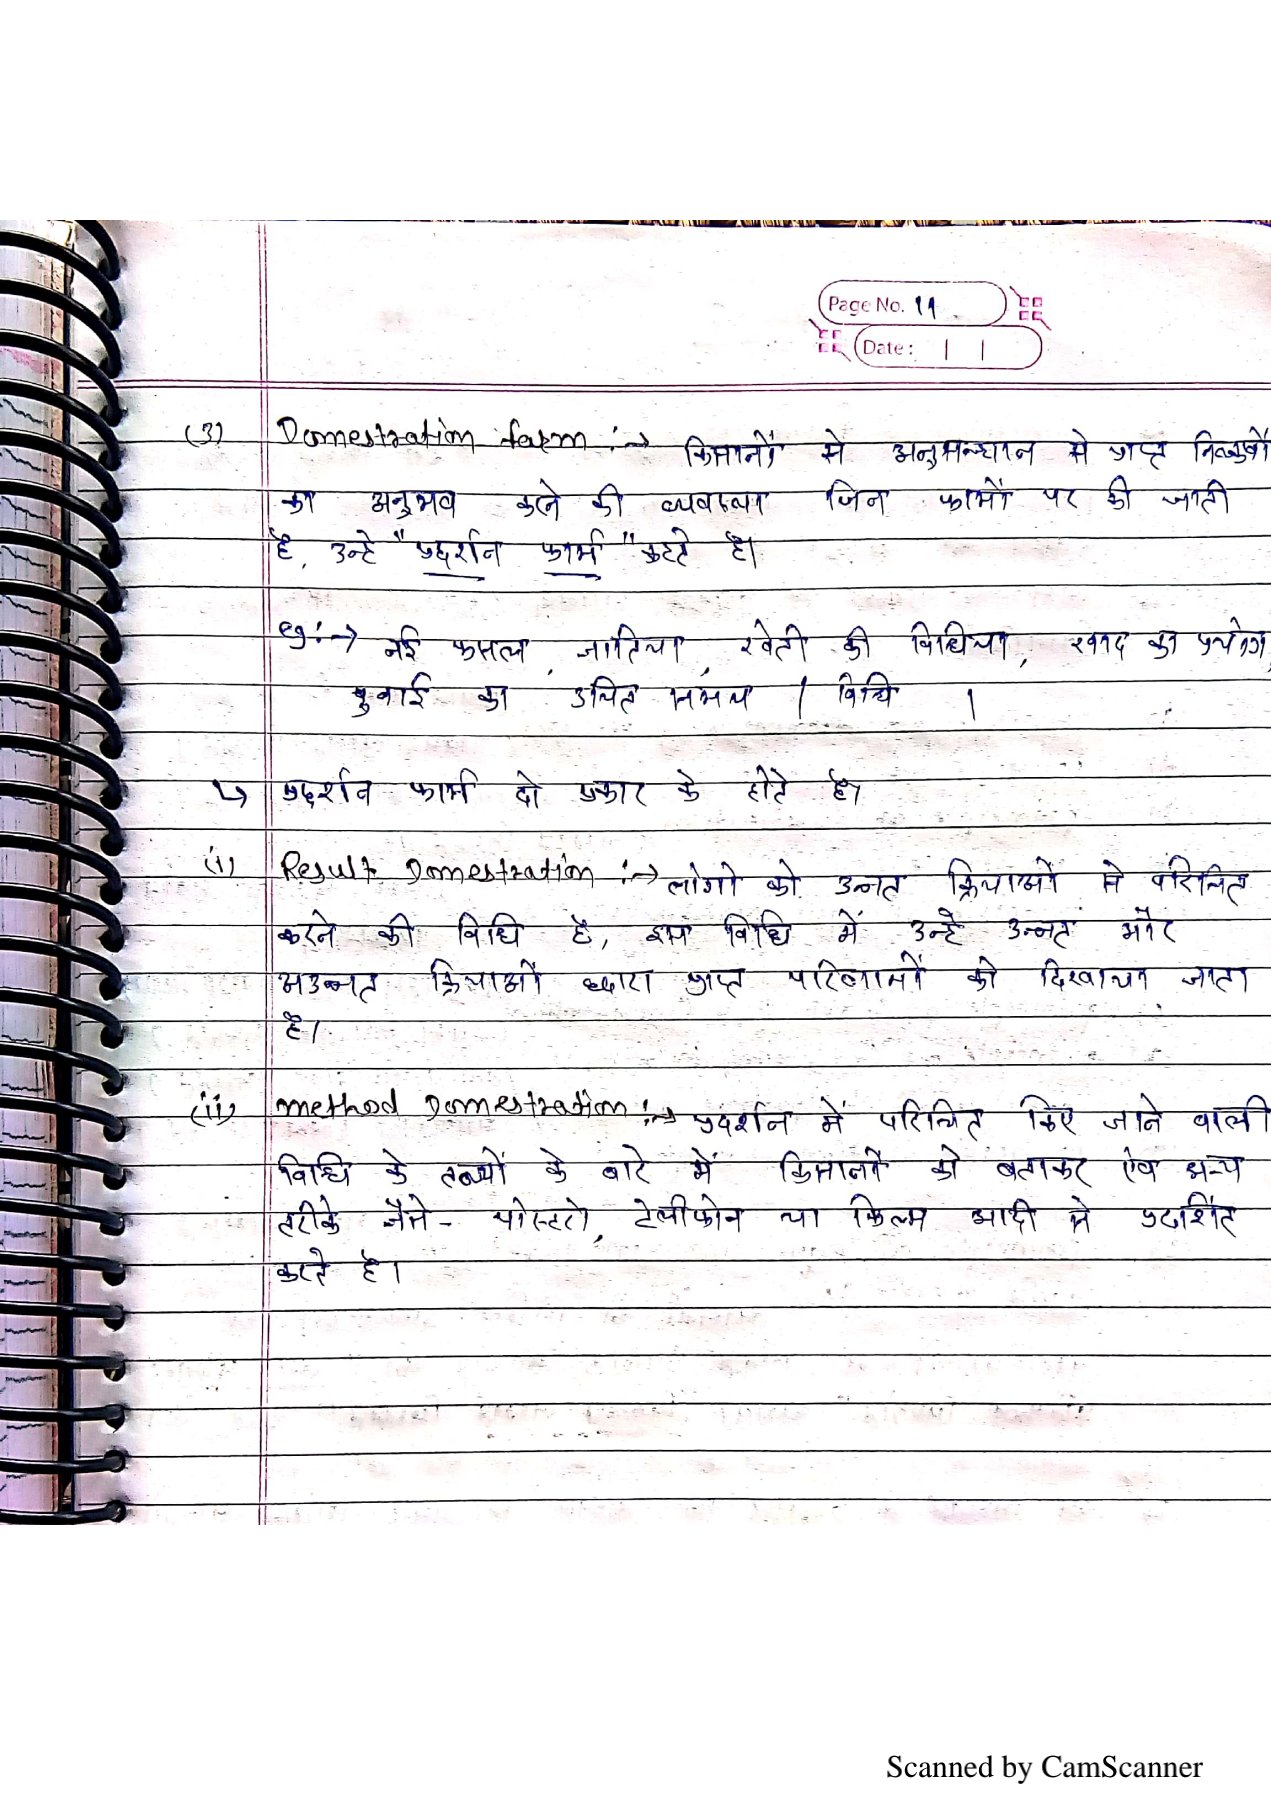 Page No. 11
Date : | |
(3) Domestration farm :→ किसानों से अनुसन्धान से प्राप्त निष्कुर्षो
का अनुभव करने की व्यवस्था जिन फार्मों पर की जाती
है, उन्हे "प्रदर्शन फार्म" कहते है।
eg :→ नई फसल, जातिया, खेती की विधिया, खाद का प्रयोग,
बुवाई का उचित समय / विधि ।
↳ प्रदर्शन फार्म दो प्रकार के होते है।
(i) Result Domestration :→ लोगो को उन्नत क्रियाओं से परिचित
करने की विधि है, इस विधि में उन्हे उन्नत और
अउन्नत क्रियाओं द्धारा प्राप्त परिणामों को दिखाया जाता
है।
(ii) method Domestration :→ प्रदर्शन में परिचित किए जाने वाली
विधि के तथ्यों के बारे में किसानों को बताकर ऐव अन्य
तरीके जैसे - पोस्टरो, टेलीफोन या फिल्म आदी से प्रदर्शित
करते है।
Scanned by CamScanner